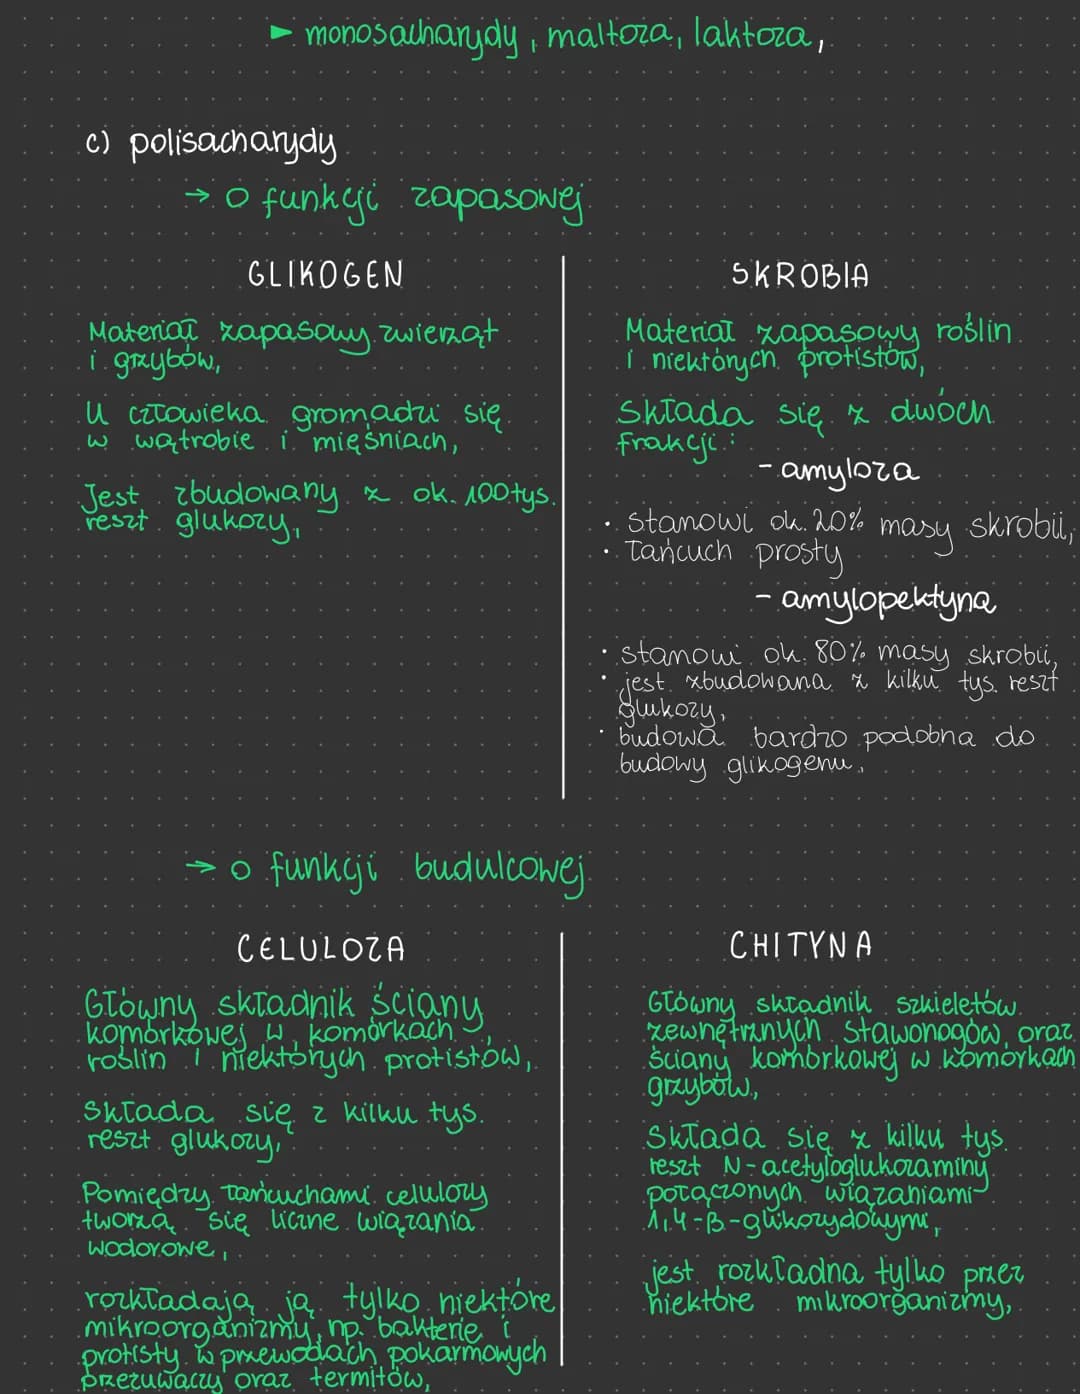 ► monosacharydy, maltoza, laktoza,
c) polisacharydy
→ o funkcji zapasowej
GLIKOGEN
Materiał zapasowy zwierząt
i grzybów,
U człowieka gromadzi się
w wątrobie i mięśniach,
Jest zbudowany z ok. 100 tys.
reszt glukozy,
SKROBIA
Materiał zapasowy roślin
i niektórych protistów,
Składa się z dwóch
frakcji:
- amyloza
• stanowi ok. 20% masy skrobii,
• łańcuch prosty
- amylopektyna
• stanowi ok. 80% masy skrobii,
• jest zbudowana z kilku tys. reszt
glukozy,
• budowa bardzo podobna do
budowy glikogenu,
→ o funkcji budulcowej
CELULOZA
Główny składnik ściany
komórkowej w komórkach
roślin i niektórych protistów,
Składa się z kilku tys.
reszt glukozy,
Pomiędzy łańcuchami celulozy
tworzą się liczne wiązania
wodorowe,
rozkładają ją tylko niektóre
mikroorganizmy, np. bakterie i
protisty w przewodach pokarmowych
przeżuwaczy oraz termitów,
CHITYNA
Główny składnik szkieletów
zewnętrznych stawonogów, oraz
ściany komórkowej w komórkach
grzybów,
Składa się z kilku tys.
reszt N-acetyloglukozaminy
połączonych wiązaniami
1,4-β-glikozydowymi,
jest rozkładna tylko przez
niektóre mikroorganizmy,